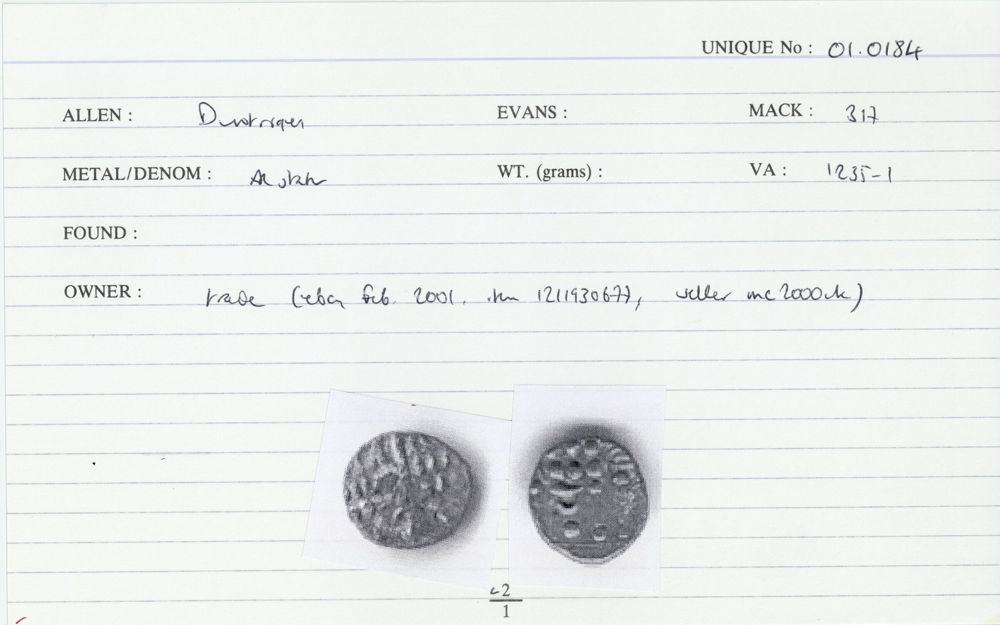 UNIQUE No : 01.0184
ALLEN : Durotriges EVANS : MACK : 317
METAL/DENOM : AR stater WT. (grams) : VA : 1235-1
FOUND :
OWNER : trade (ebay Feb. 2001. item 1211930677, seller mc2000uk)
c2
1